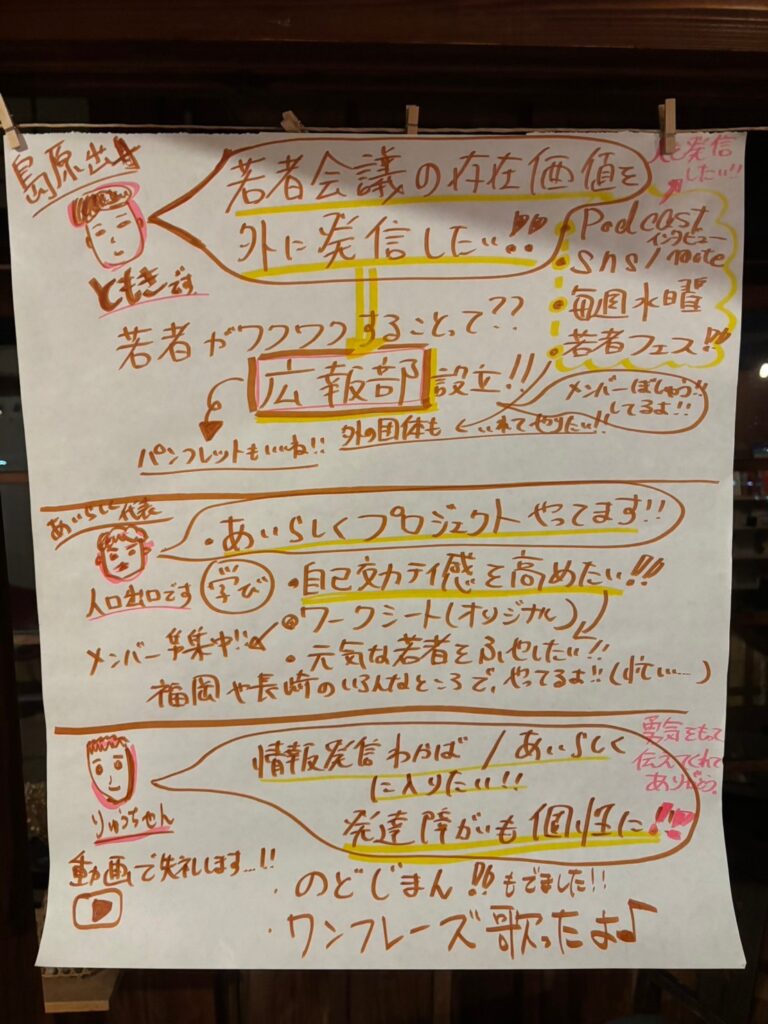 島原出身
ともきです
若者会議の存在価値を
外に発信したい!!
人も発信
したい!!
・Podcast
インタビュー
・sns/note
・毎週水曜
・若者フェス!!
若者がワクワクすることって??
広報部設立!!
メンバーぼしゅう!!
してるよ!!
外の団体も ← いれてやりたい!!
パンフレットもいいね!!
あいらしく代表
・あいらしくプロジェクトやってます!!
人口出口です
学び
・自己効力感を高めたい!!
・ワークシート(オリジナル)
メンバー募集中!!
・元気な若者をふやしたい!!
福岡や長崎のいろんなところで、やってるよ!!(忙い…)
りゅうちせん
情報発信わかば/あいらしく
に入りたい!!
発達障がいも個性に!!
勇気をもって
伝えてくれて
ありがとう。
動画で失礼します…!!
・のどじまん!!もでました!!
・ワンフレーズ歌ったよ♪